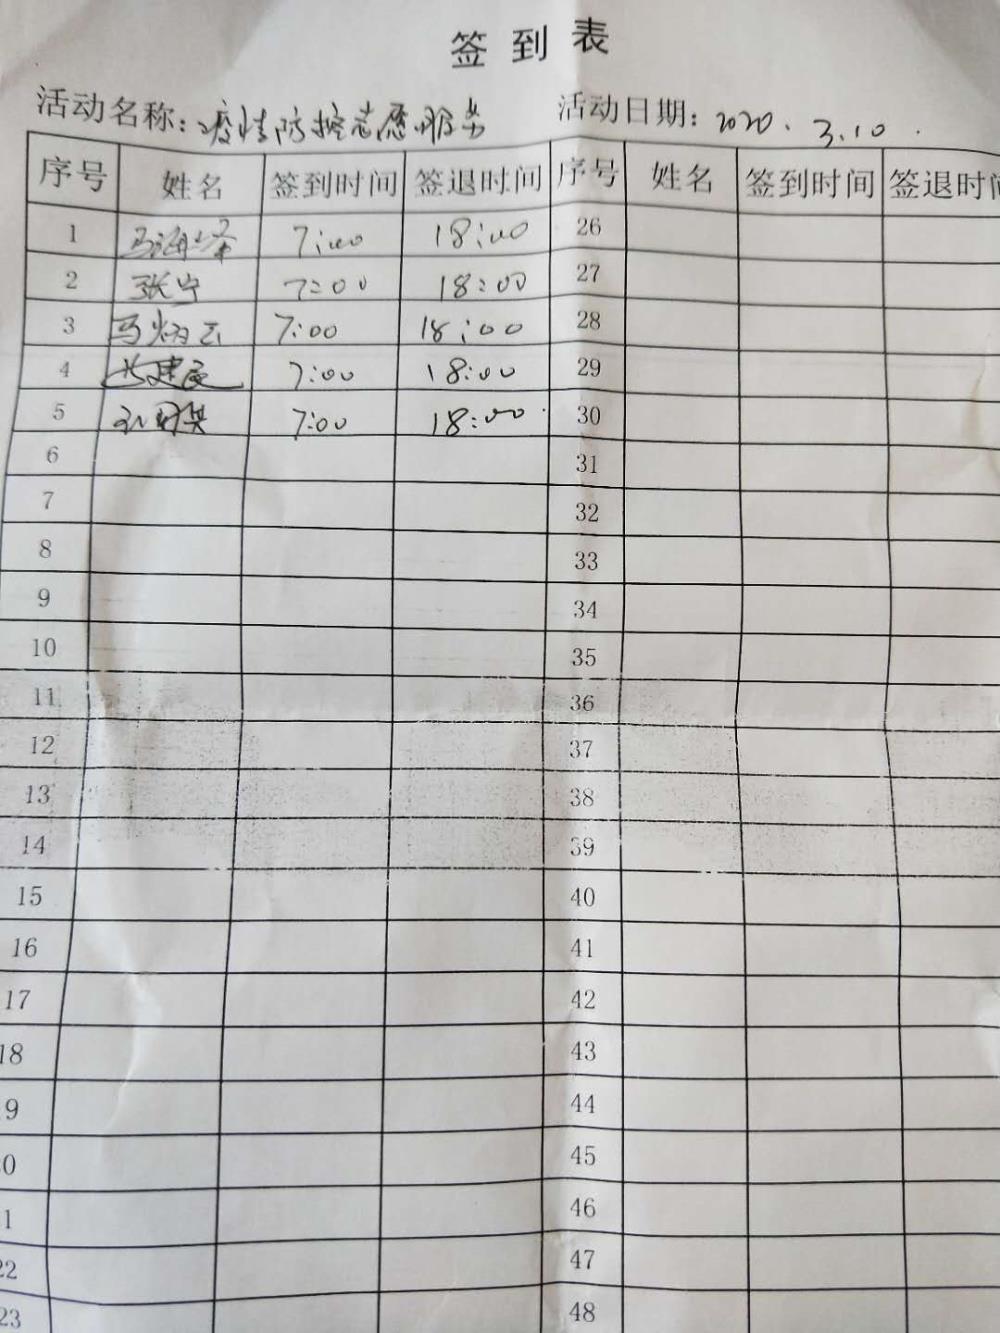 签到表
活动名称：疫情防控志愿服务 活动日期：2020.3.10.
序号 姓名 签到时间 签退时间 序号 姓名 签到时间 签退时
1 马海峰 7:00 18:00 26
2 张宁 7:00 18:00 27
3 马炳云 7:00 18:00 28
4 7:00 18:00 29
5 7:00 18:00 30
6 31
7 32
8 33
9 34
10 35
11 36
12 37
13 38
14 39
15 40
16 41
17 42
18 43
9 44
0 45
1 46
22 47
23 48